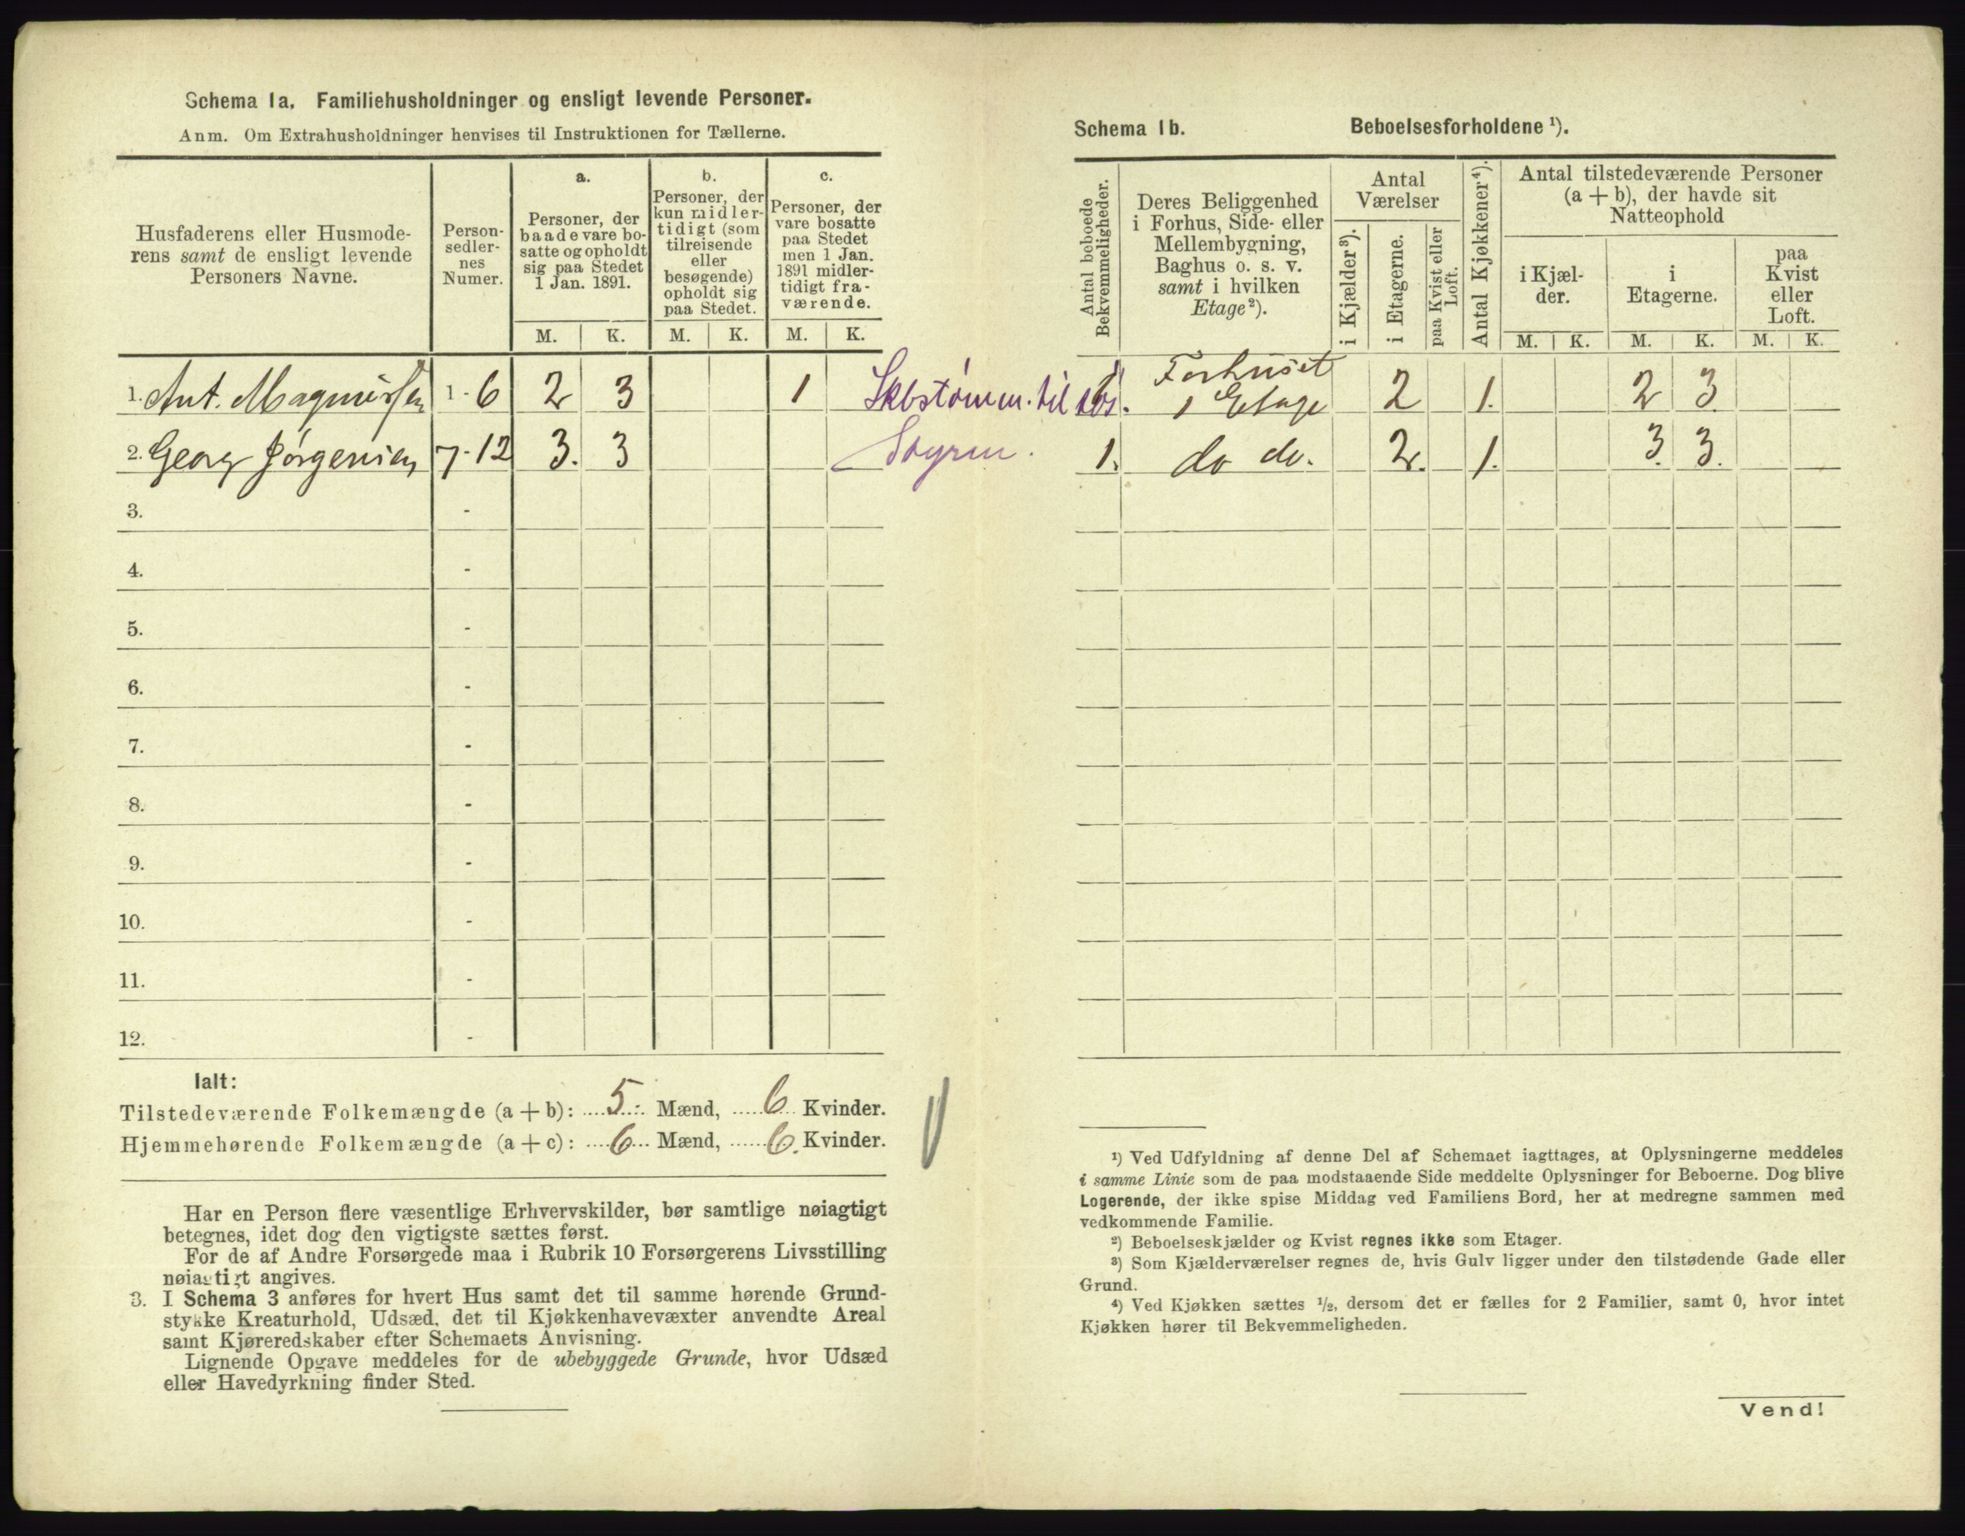 Schema 1a. Familiehusholdninger og ensligt levende Personer.
Anm. Om Extrahusholdninger henvises til Instruktionen for Tællerne.
Husfaderens eller Husmode-
rens samt de ensligt levende
Personers Navne.
Person-
sedler-
nes
Numer.
a.
Personer, der
baade vare bo-
satte og opholdt
sig paa Stedet
1 Jan. 1891.
b.
Personer, der
kun midler-
tidigt (som
tilreisende
eller
besøgende)
opholdt sig
paa Stedet.
c.
Personer, der
vare bosatte
paa Stedet
men 1 Jan.
1891 midler-
tidigt fra-
værende.
M. K. M. K. M. K.
1. Ant. Magnussen 1 - 6 2 3 1 til
2. Georg Jørgensen 7 - 12 3. 3
3. -
4. -
5. -
6. -
7. -
8. -
9. -
10. -
11. -
12. -
Ialt:
Tilstedeværende Folkemængde (a + b): 5 Mænd, 6 Kvinder.
Hjemmehørende Folkemængde (a + c): 6 Mænd, 6 Kvinder.
Har en Person flere væsentlige Erhvervskilder, bør samtlige nøiagtigt
betegnes, idet dog den vigtigste sættes først.
For de af Andre Forsørgede maa i Rubrik 10 Forsørgerens Livsstilling
nøiagtigt angives.
3. I Schema 3 anføres for hvert Hus samt det til samme hørende Grund-
stykke Kreaturhold, Udsæd, det til Kjøkkenhavevæxter anvendte Areal
samt Kjøreredskaber efter Schemaets Anvisning.
Lignende Opgave meddeles for de ubebyggede Grunde, hvor Udsæd
eller Havedyrkning finder Sted.
Schema 1b. Beboelsesforholdene ¹).
Antal beboede
Bekvemmeligheder.
Deres Beliggenhed
i Forhus, Side- eller
Mellembygning,
Baghus o. s. v.
samt i hvilken
Etage²).
Antal
Værelser
i Kjælder³).
i Etagerne.
paa Kvist eller
Loft.
Antal Kjøkkener⁴).
Antal tilstedeværende Personer
(a + b), der havde sit
Natteophold
i Kjæl-
der.
i
Etagerne.
paa
Kvist
eller
Loft.
M. K. M. K. M. K.
Forhuset
1 Etage 2 1. 2 3
1. do do. 2. 1. 3. 3.
¹) Ved Udfyldning af denne Del af Schemaet iagttages, at Oplysningerne meddeles
i samme Linie som de paa modstaaende Side meddelte Oplysninger for Beboerne. Dog blive
Logerende, der ikke spise Middag ved Familiens Bord, her at medregne sammen med
vedkommende Familie.
²) Beboelseskjælder og Kvist regnes ikke som Etager.
³) Som Kjælderværelser regnes de, hvis Gulv ligger under den tilstødende Gade eller
Grund.
⁴) Ved Kjøkken sættes ½, dersom det er fælles for 2 Familier, samt 0, hvor intet
Kjøkken hører til Bekvemmeligheden.
Vend!